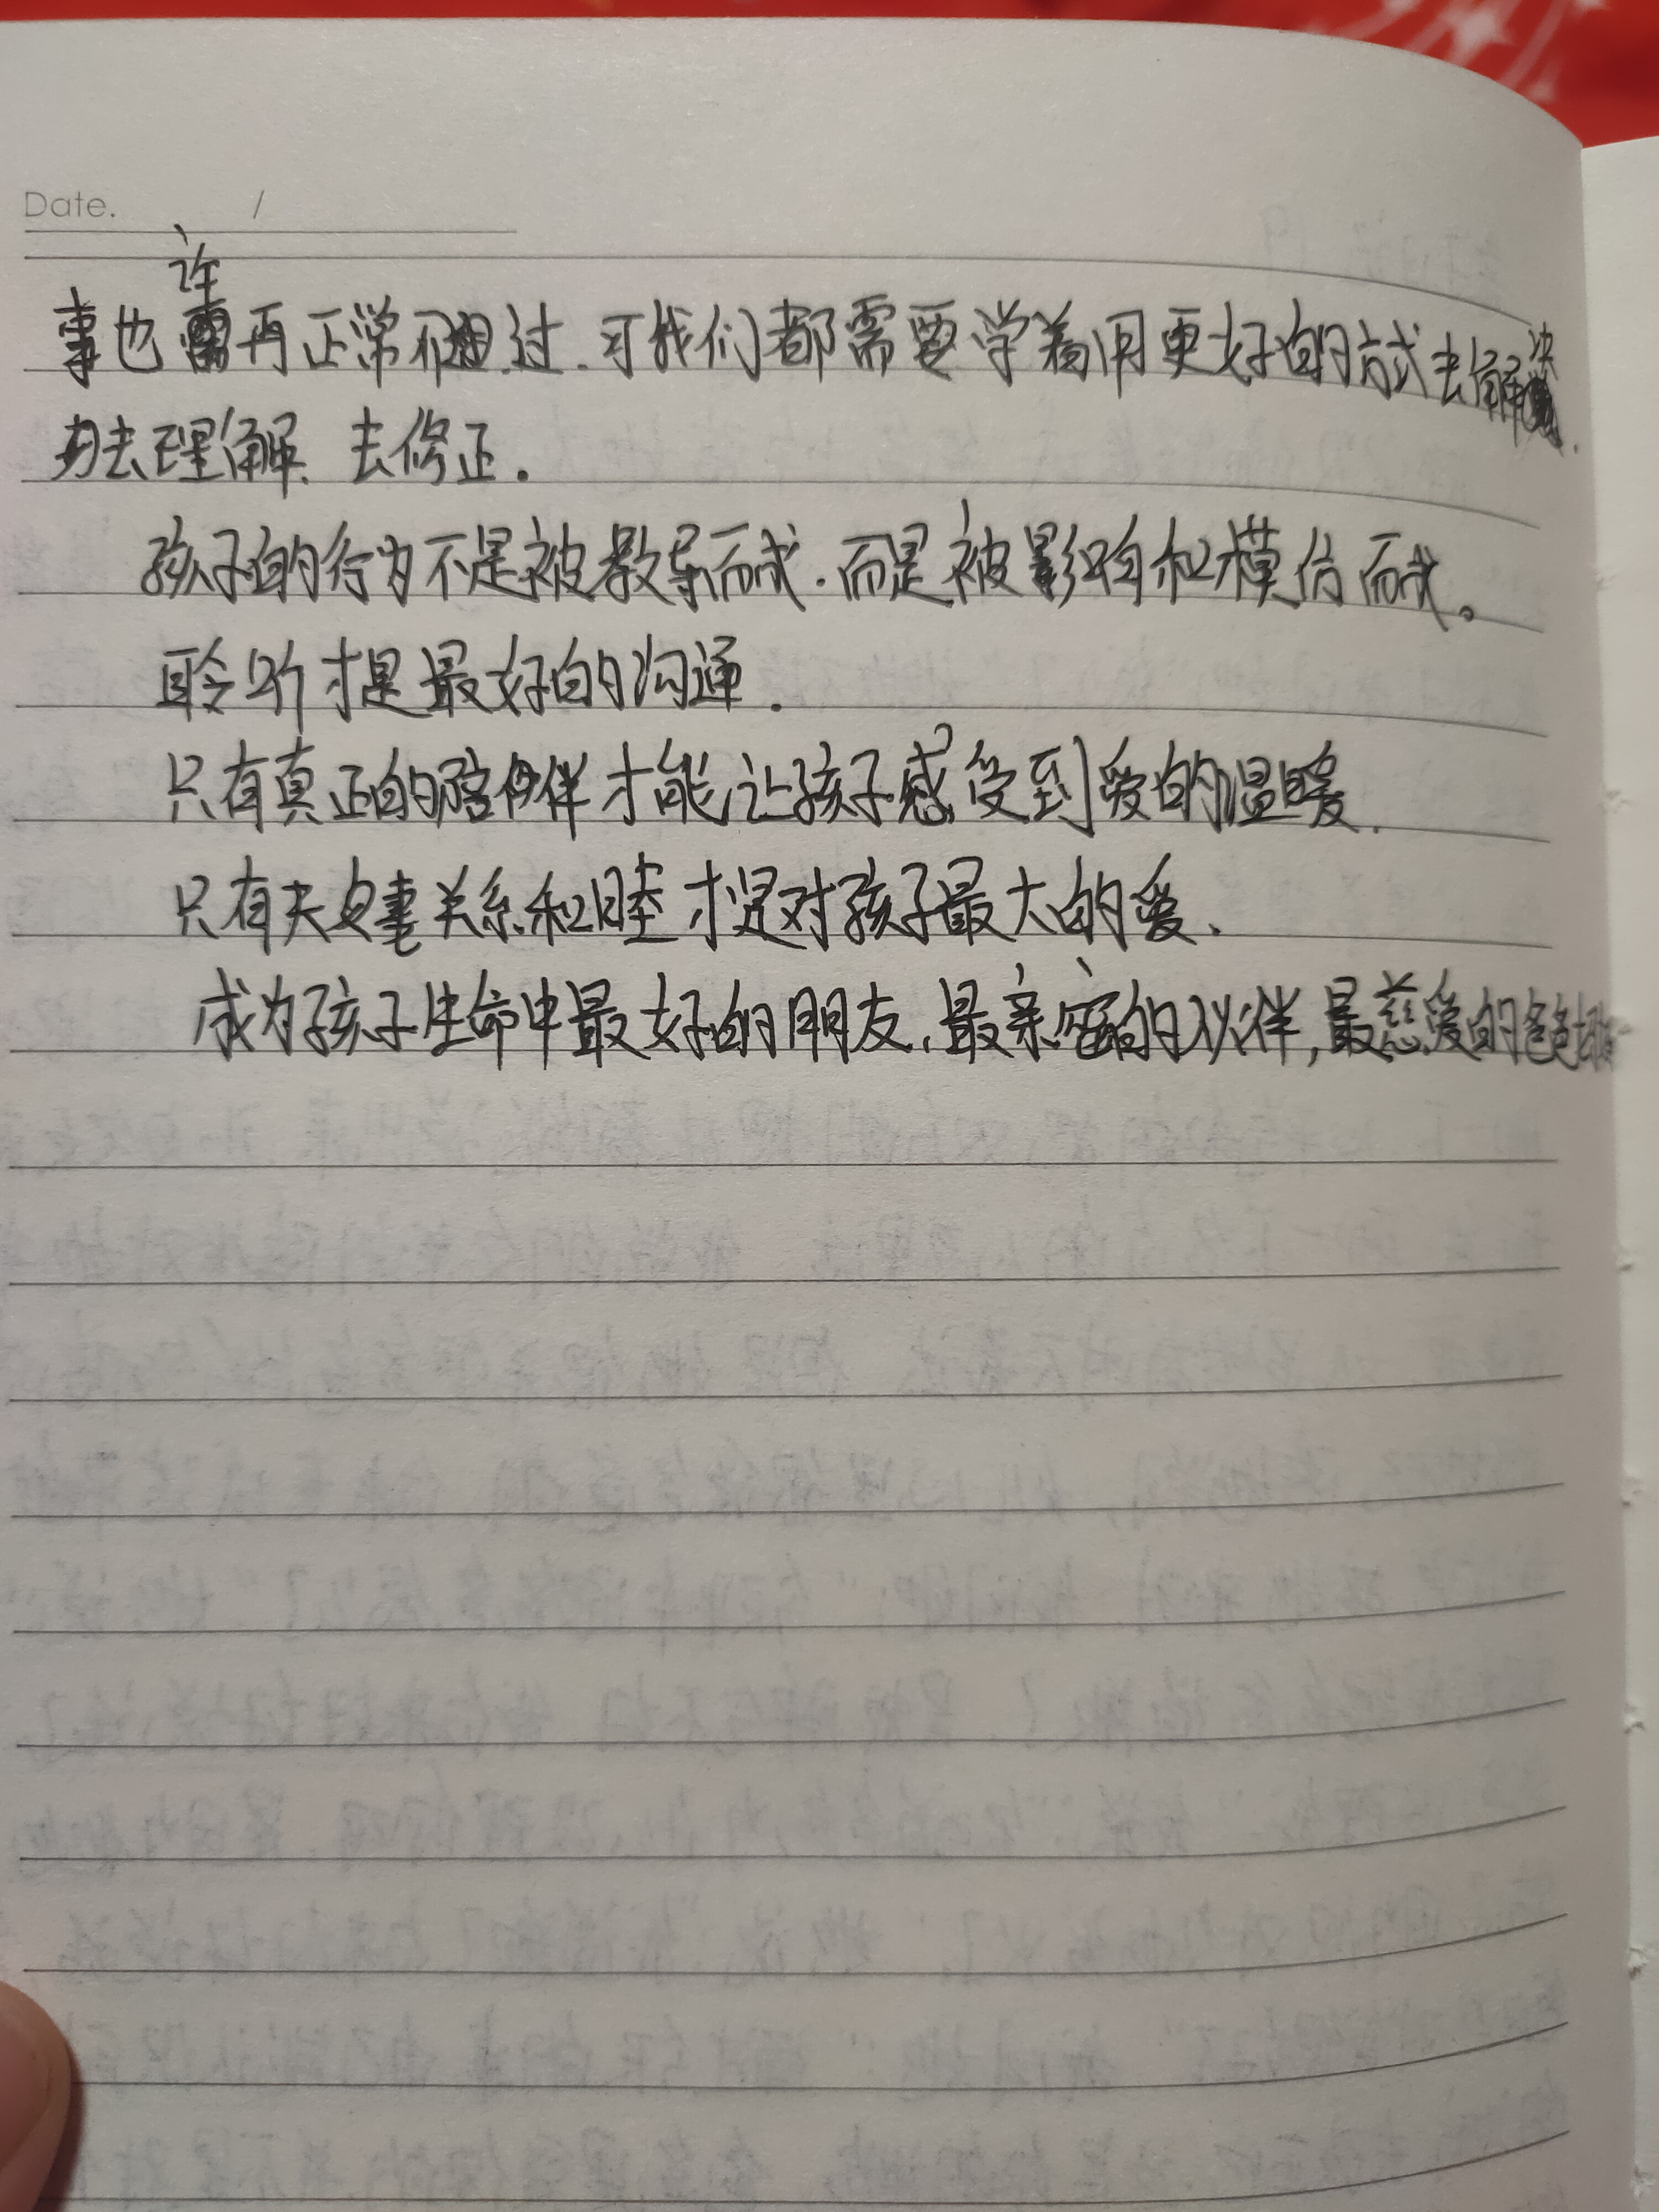 Date. /
事也许再正常不过.可我们都需要学着用更好的方式去解决
去理解、去修正.
孩子的行为不是被教导而成.而是被影响和模仿而成。
聆听才是最好的沟通.
只有真正的陪伴才能让孩子感受到爱的温暖.
只有夫妻关系和睦才是对孩子最大的爱.
成为孩子生命中最好的朋友.最亲密的伙伴,最慈爱的爸